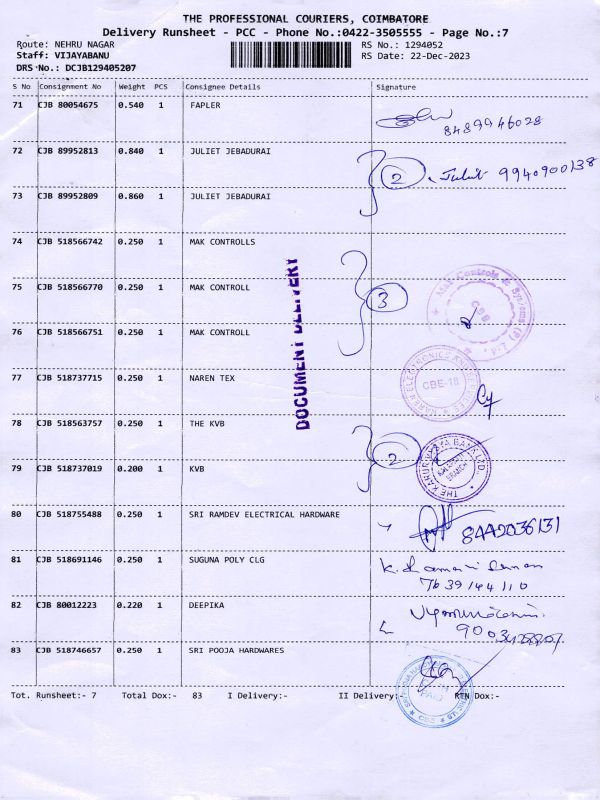 THE PROFESSIONAL COURIERS, COIMBATORE
Delivery Runsheet - PCC - Phone No.:0422-3505555 - Page No.:7
Route: NEHRU NAGAR RS No.: 1294052
Staff: VIJAYABANU RS Date: 22-Dec-2023
DRS No.: DCJB129405207
S No Consignment No Weight PCS Consignee Details Signature
71 CJB 80054675 0.540 1 FAPLER
8489946028
72 CJB 89952813 0.840 1 JULIET JEBADURAI
2 Juliet 9940900138
73 CJB 89952809 0.860 1 JULIET JEBADURAI
74 CJB 518566742 0.250 1 MAK CONTROLLS
DOCUMENT DELIVERY
75 CJB 518566770 0.250 1 MAK CONTROLL
3 Mak Controls & Systems (P) CBB
76 CJB 518566751 0.250 1 MAK CONTROLL
77 CJB 518737715 0.250 1 NAREN TEX
CBE-18
78 CJB 518563757 0.250 1 THE KVB
2 THE KARUR VYSYA BANK LTD. BRANCH
79 CJB 518737019 0.200 1 KVB
80 CJB 518755488 0.250 1 SRI RAMDEV ELECTRICAL HARDWARE
8442036131
81 CJB 518691146 0.250 1 SUGUNA POLY CLG
7639144110
82 CJB 80012223 0.220 1 DEEPIKA
83 CJB 518746657 0.250 1 SRI POOJA HARDWARES
Tot. Runsheet:- 7 Total Dox:- 83 I Delivery:- II Delivery:- RTN Dox:-